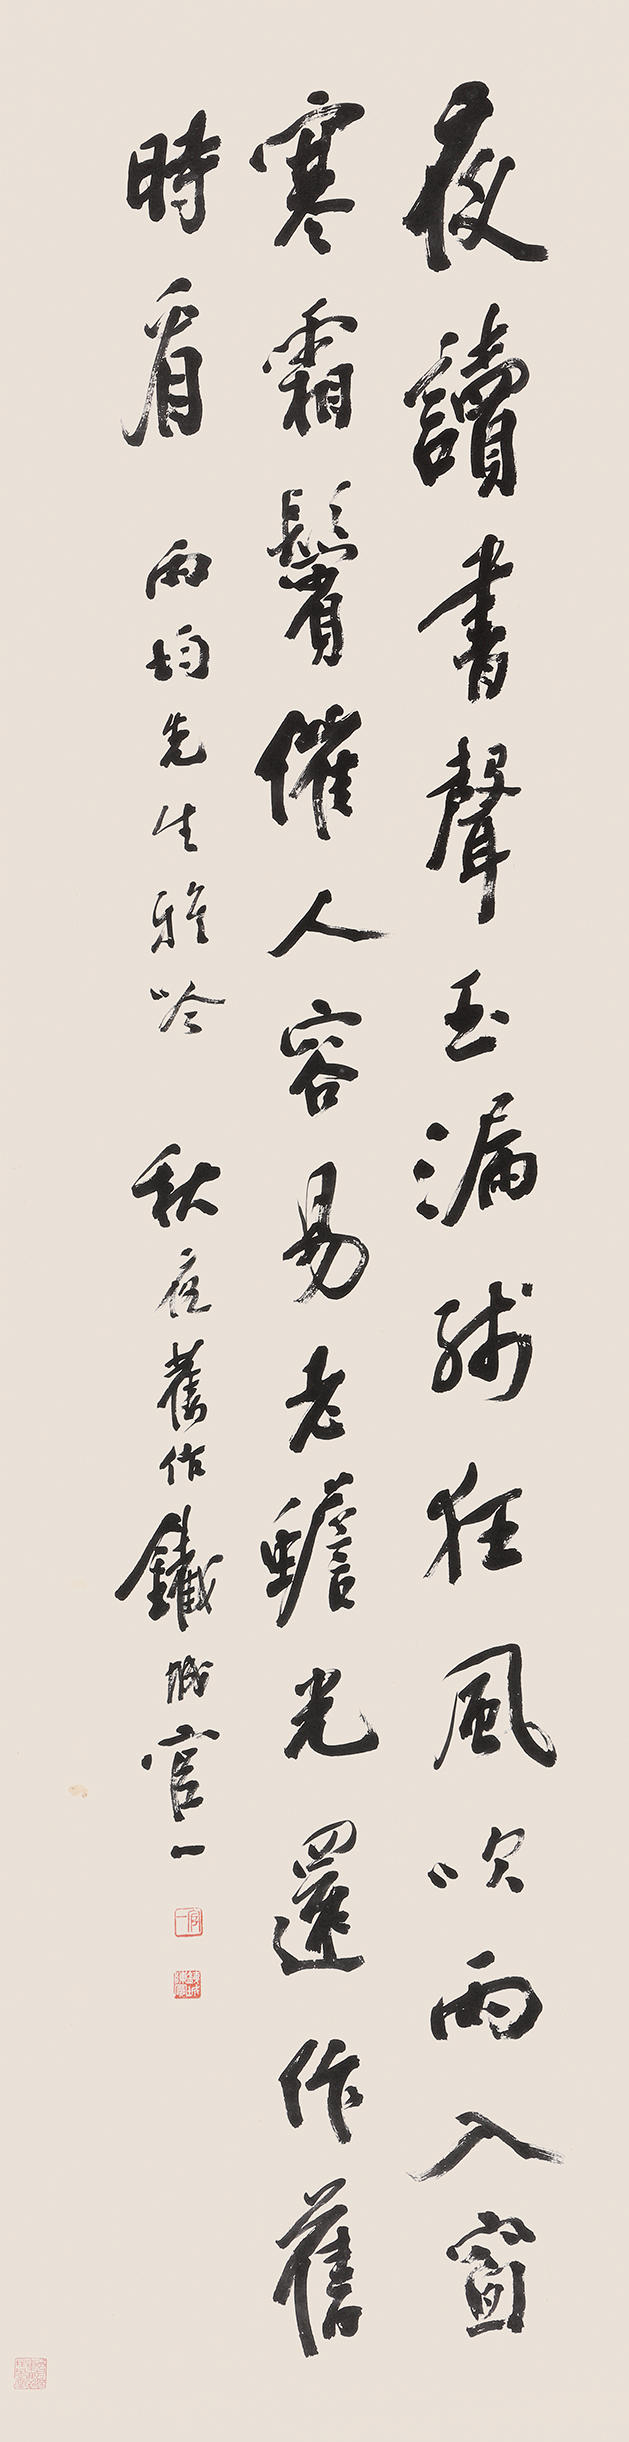 夜讀書聲玉漏殘狂風吹雨入窗
寒霜鬢催人容易老蟾光還作舊
時看
雨均先生雅吟 秋夜舊作鐵城官一
官一